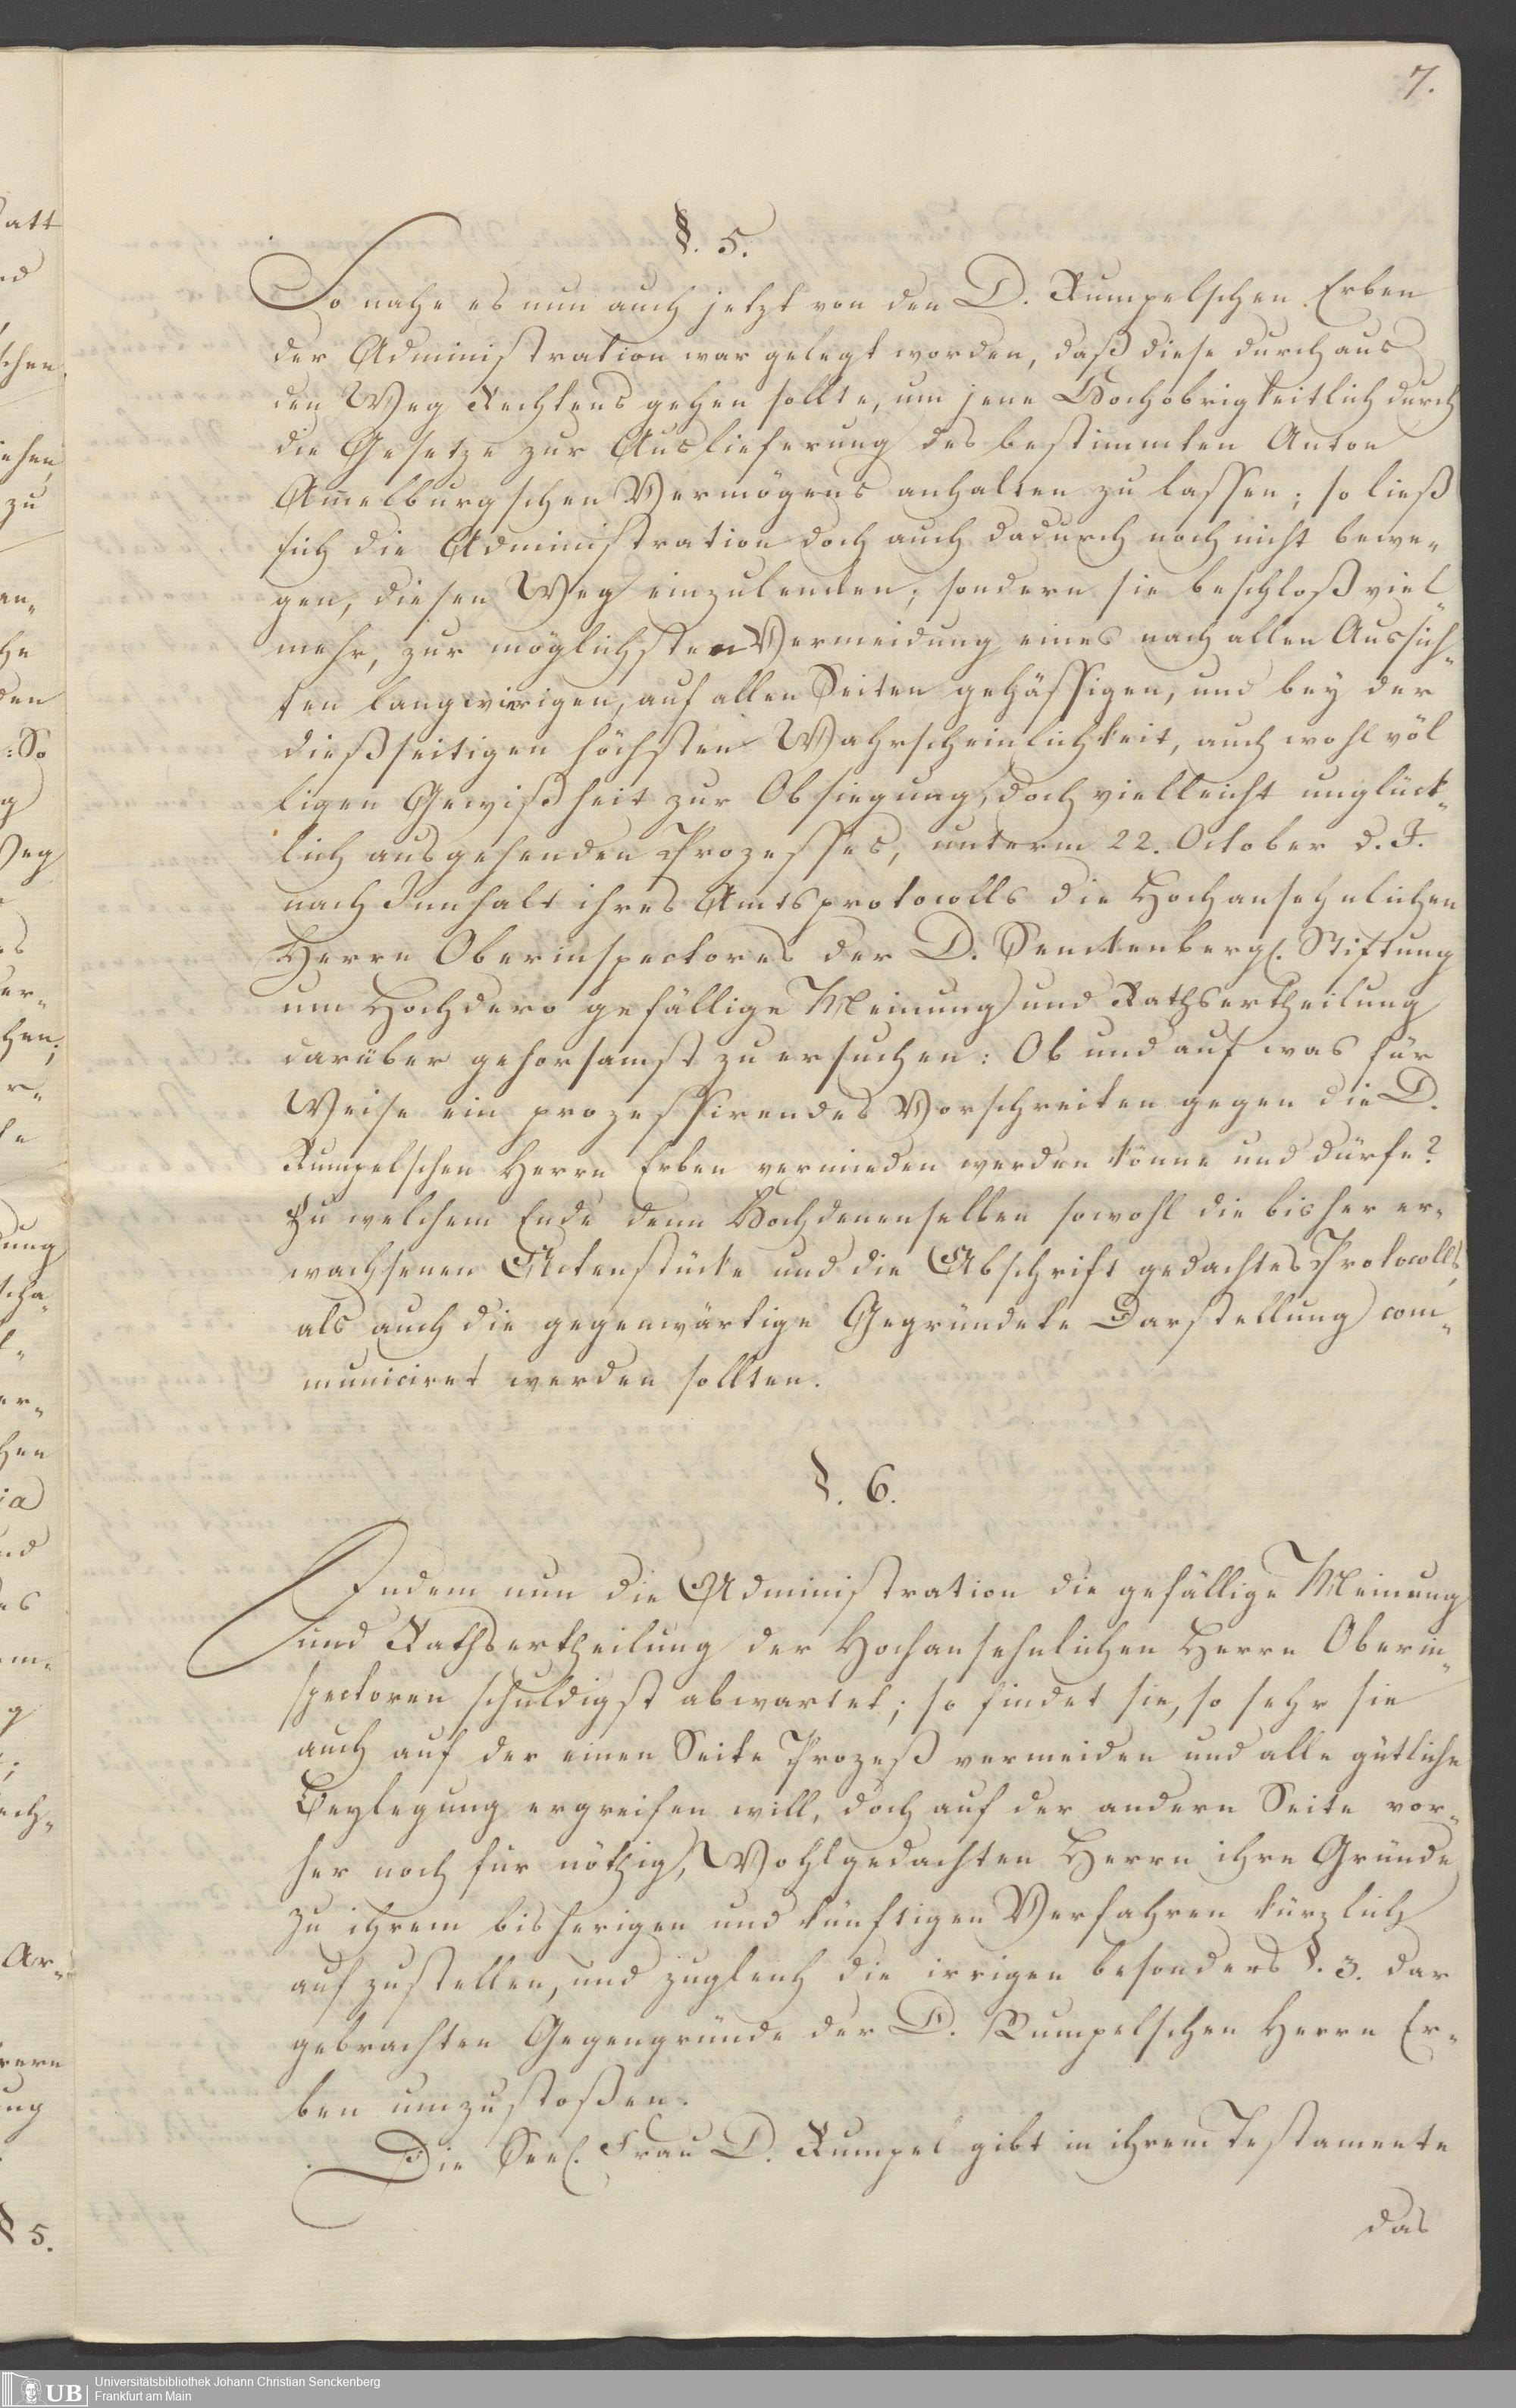 7.
§. 5.
So nahe es nun auch jetzt von den D. Rumpelschen Erben
der Administration war gelegt worden, daß diese durchaus
den Weg Rechtens gehen sollte, um jene Hochobrigkeitlich durch
die Gesetze zur Auslieferung des bestimmten Anton
Amelburgschen Vermögens anhalten zu lassen; so ließ
sich die Administration doch auch dadurch noch nicht bewe„
gen, diesen Weg einzulenken; sondern sie beschloß viel„
mehr, zur möglichsten Vermeidung eines nach allen Aussich„
ten langwierigen, auf allen Seiten gehässigen, und bey der
dießseitigen höchsten Wahrscheinlichkeit, auch wohl völ
ligen Gewißheit zur Obsiegung, doch vielleicht unglück„
lich ausgehenden Prozesses, unterm 22. October d. J.
nach Innhalt ihres Amtsprotocolls die Hochansehnlichen
Herrn Oberinspectores der D. Senckenbergs. Stiftung
um Hochdero gefällige Meinung und Rathsertheilung
darüber gehorsamst zu ersuchen: Ob und auf was für
Weise ein prozessirendes Vorschreiten gegen die D.
Rumpelschen Herrn Erben vermieden werden könne und dürfe?
Zu welchem Ende denn Hochdenenselben sowohl die bisher er„
wachsenen Actenstücke und die Abschrift gedachtes Protocolls,
als auch die gegenwärtige Gegründete Darstellung com„
municiret werden sollten.
§. 6.
Indem nun die Administration die gefällige Meinung
und Rathsertheilung der Hochansehnlichen Herrn Oberin„
spectoren schuldigst abwartet; so findet sie, so sehr sie
auch auf der einen Seite Prozeß vermeiden und alle gütliche
Beylegung ergreifen will, doch auf der andern Seite vor„
her noch für nöthig, Wohlgedachten Herrn ihre Gründe
zu ihrem bisherigen und künftigen Verfahren kürzlich
aufzustellen, und zugleich die irrigen besonders §. 3. dar
gebrachten Gegengründe der D. Rumpelschen Herrn Er„
ben umzustoßen.
Die Seel. Frau D. Rumpel gibt in ihrem Testamente
das
att
nd
schen
iehen,
zu
en„
he
den
:So
g
Weg
es
er„
hen;
r„
le
dung
scha„
l„
er„
hen
ia
nd
des
m„
g
ech„
Ar„
rern
ung
§ 5.
UB
Universitätsbibliothek Johann Christian Senckenberg
Frankfurt am Main